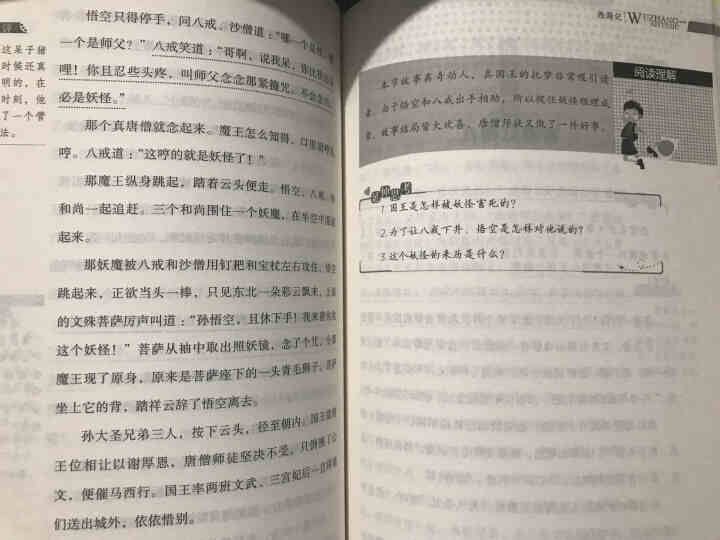 这呆子猪
时候还真
明的，在
时刻，他
了一个管
法。
悟空只得停手，问八戒、沙僧道：“哪一个是
一个是师父？”八戒笑道：“哥啊，说我呆，你比我
哩！你且忍些头疼，叫师父念念那紧箍咒，不会念的
必是妖怪。”
那个真唐僧就念起来。魔王怎么知得，口里胡哼
哼。八戒道：“这哼的就是妖怪了！”
那魔王纵身跳起，踏着云头便走。悟空、八戒、
和尚一起追赶，三个和尚围住一个妖魔，在半空中
起来。
那妖魔被八戒和沙僧用钉耙和宝杖左右攻住，悟空
跳起来，正欲当头一棒，只见东北一朵彩云飘来，上面
的文殊菩萨厉声叫道：“孙悟空，且休下手！我来
这个妖怪！”菩萨从袖中取出照妖镜，念了个咒，
魔王现了原身，原来是菩萨座下的一头青毛狮子。菩萨
坐上它的背，踏祥云辞了悟空离去。
孙大圣兄弟三人，按下云头，径至朝内。国王
王位相让以谢厚恩，唐僧师徒坚决不受，只倒换了
文，便催马西行。国王率两班文武、三宫妃后一直将
们送出城外，依依惜别。
西游记
阅读理解
本节故事离奇动人，真国王的托梦非常吸引读
者。由于悟空和八戒出手相助，所以捉住妖怪理所应
当。故事结局皆大欢喜，唐僧师徒又做了一件好事。
1.国王是怎样被妖怪害死的？
2.为了让八戒下井，悟空是怎样对他说的？
3.这个妖怪的来历是什么？